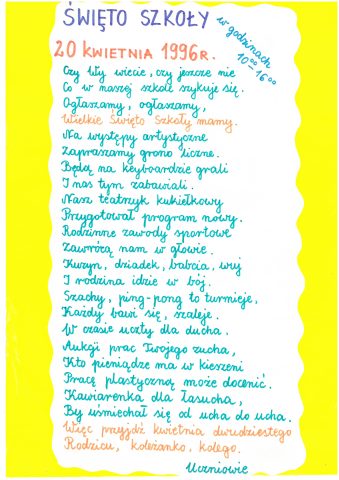 ŚWIĘTO SZKOŁY
w godzinach
10⁰⁰ - 16⁰⁰
20 KWIETNIA 1996 R.
Czy Wy wiecie, czy jeszcze nie
Co w naszej szkole szykuje się.
Ogłaszamy, ogłaszamy,
Wielkie Święto Szkoły mamy.
Na występy artystyczne
Zapraszamy grono liczne.
Będą na keyboardzie grali
I nas tym zabawiali.
Nasz teatrzyk kukiełkowy
Przygotował program nowy.
Rodzinne zawody sportowe
Zawrócą nam w głowie.
Kuzyn, dziadek, babcia, wuj
I rodzina idzie w bój.
Szachy, ping-pong to turnieje,
Każdy bawi się, szaleje.
W czasie uczty dla ducha.
Aukcji prac Twojego zucha,
Kto pieniądze ma w kieszeni
Pracę plastyczną może docenić.
Kawiarenka dla łasucha,
By uśmiechał się od ucha do ucha.
Więc przyjdź kwietnia dwudziestego
Rodzicu, koleżanko, kolego.
Uczniowie